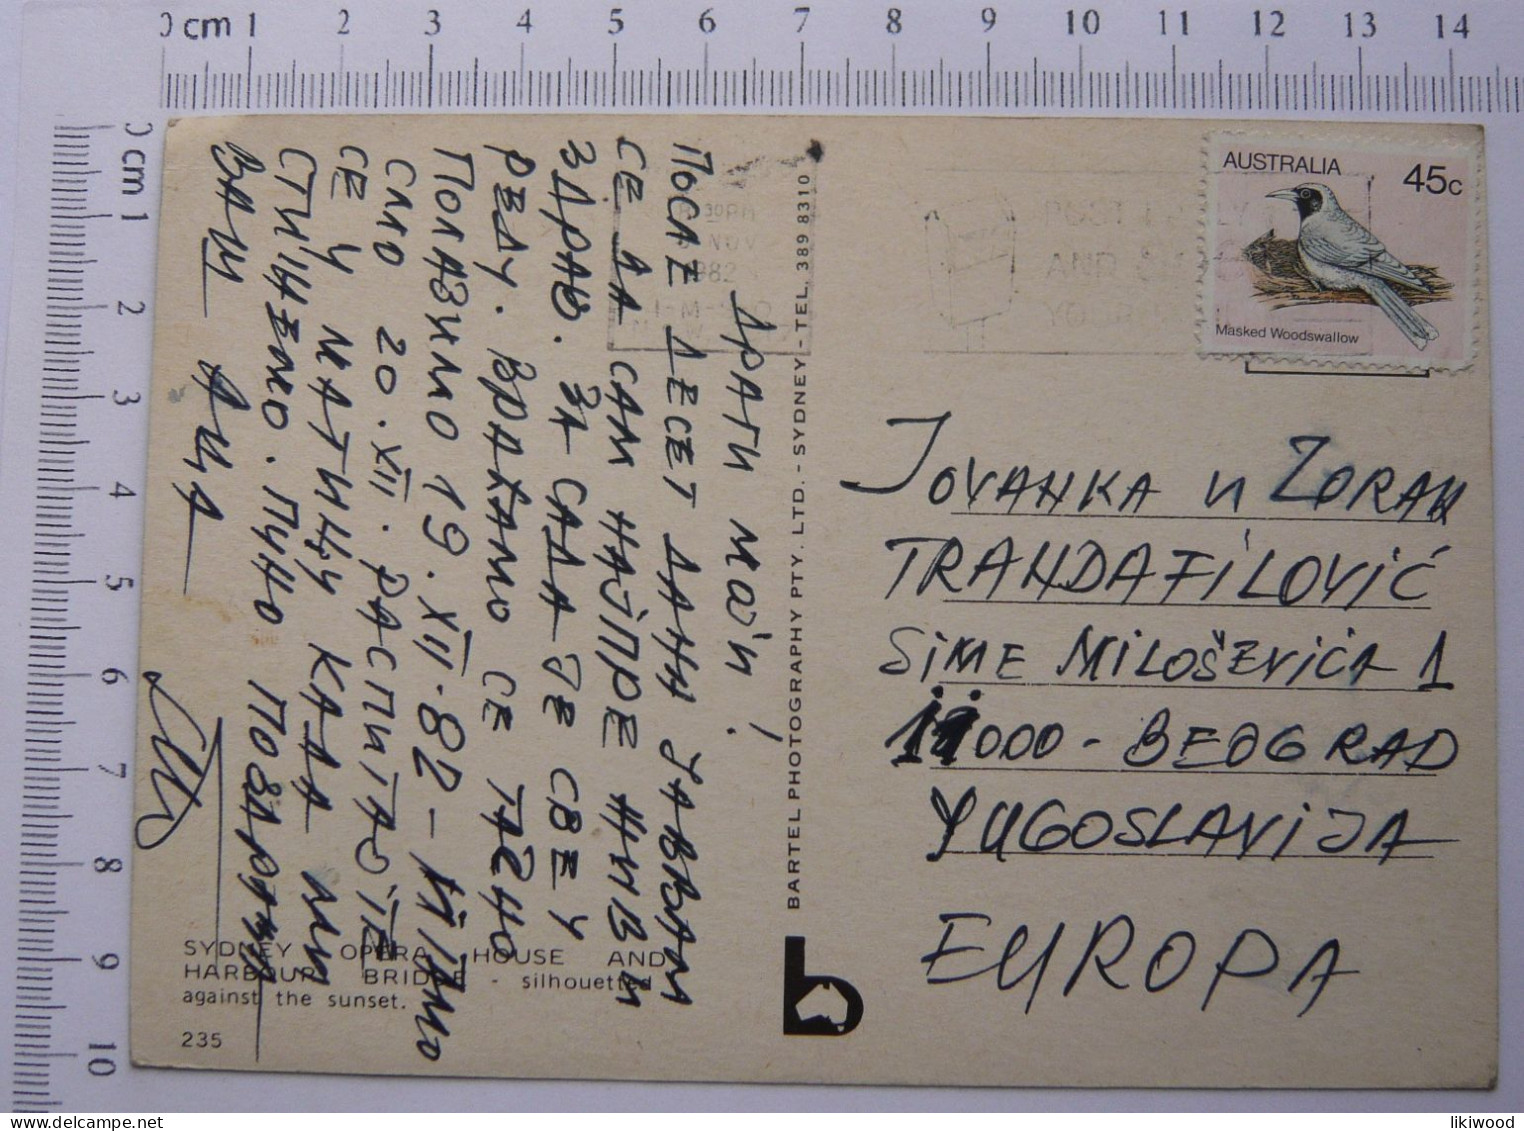 0 cm 1 2 3 4 5 6 7 8 9 10 11 12 13 14
0 cm 1 2 3 4 5 6 7 8 9 10
AUSTRALIA 45c
Masked Woodswallow
NOV
1982
POST
AND
YOUR
ДРАГИ МОЈИ!
ПОСЛЕ ДЕСЕТ ДАНА ЈАВЉАМ
СЕ ДА САМ НАЈПРЕ ЖИВ И
ЗДРАВ. ЗА САДА ЈЕ СВЕ У
РЕДУ. ВРАЋАМО СЕ ТАЧНО
ПОЛАЗИМО 19.XII.82 –
СМО 20.XII. РАСПИТАЈТЕ
СЕ У КАДА МИ
СТИЖЕМО. ПУНО ПОЗДРАВА
ВАШ АЦА
BARTEL PHOTOGRAPHY PTY. LTD. - SYDNEY - TEL. 389 8310
JOVANKA и ZORAN
TRANDAFILOVIĆ
SIME MILOŠEVIĆA 1
11000 - BEOGRAD
YUGOSLAVIJA
EUROPA
SYDNEY OPERA HOUSE AND
HARBOUR BRIDGE - silhouetted
against the sunset.
235
b
likiwood